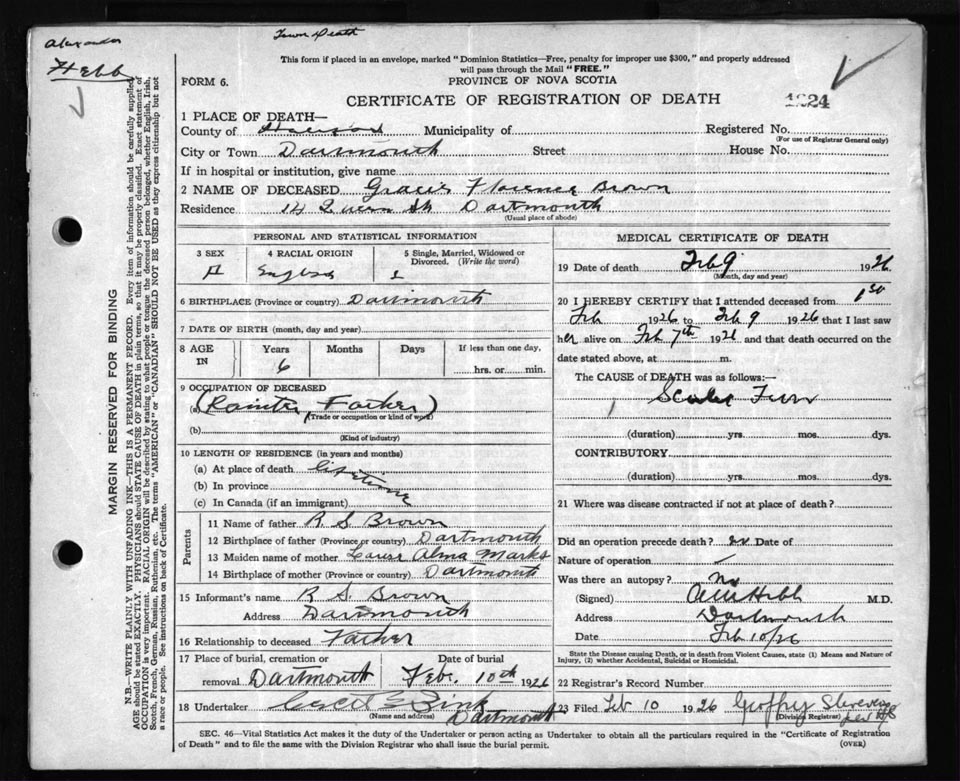 Alexander
Hebb
Town Death
This form if placed in an envelope, marked "Dominion Statistics—Free, penalty for improper use $300," and properly addressed
will pass through the Mail "FREE."
FORM 6.
PROVINCE OF NOVA SCOTIA
CERTIFICATE OF REGISTRATION OF DEATH
1924
1 PLACE OF DEATH—
County of Municipality of Registered No.
(For use of Registrar General only)
City or Town Dartmouth Street House No.
If in hospital or institution, give name
2 NAME OF DECEASED Florence Brown
Residence 14 Queen St Dartmouth
(Usual place of abode)
PERSONAL AND STATISTICAL INFORMATION
3 SEX 4 RACIAL ORIGIN 5 Single, Married, Widowed or
Divorced. (Write the word)
English
6 BIRTHPLACE (Province or country) Dartmouth
7 DATE OF BIRTH (month, day and year)
8 AGE IN Years Months Days If less than one day,
6 hrs. or min.
9 OCCUPATION OF DECEASED
(a) (Painter, Father)
(Trade or occupation or kind of work)
(b)
(Kind of industry)
10 LENGTH OF RESIDENCE (in years and months)
(a) At place of death Lifetime
(b) In province
(c) In Canada (if an immigrant)
Parents
11 Name of father R S Brown
12 Birthplace of father (Province or country) Dartmouth
13 Maiden name of mother Alma Marks
14 Birthplace of mother (Province or country) Dartmouth
15 Informant's name R S. Brown
Address Dartmouth
16 Relationship to deceased Father
17 Place of burial, cremation or Date of burial
removal Dartmouth Feb. 10th 1926
18 Undertaker Zink
(Name and address) Dartmouth
MEDICAL CERTIFICATE OF DEATH
19 Date of death Feb 9 1926
(Month, day and year)
20 I HEREBY CERTIFY that I attended deceased from
Feb 1926 to Feb 9 1926 that I last saw
her alive on Feb 7th 1926 and that death occurred on the
date stated above, at m.
The CAUSE OF DEATH was as follows:—
Scarlet Fever
(duration) yrs. mos. dys.
CONTRIBUTORY
(duration) yrs. mos. dys.
21 Where was disease contracted if not at place of death?
Did an operation precede death? no Date of
Nature of operation
Was there an autopsy? No
(Signed) Hebb M.D.
Address Dartmouth
Date Feb 10/26
State the Disease causing Death, or in death from Violent Causes, state (1) Means and Nature of
Injury, (2) whether Accidental, Suicidal or Homicidal.
22 Registrar's Record Number
23 Filed Feb 10 1926
(Division Registrar)
SEC. 46—Vital Statistics Act makes it the duty of the Undertaker or person acting as Undertaker to obtain all the particulars required in the "Certificate of Registration
of Death" and to file the same with the Division Registrar who shall issue the burial permit.
(OVER)
MARGIN RESERVED FOR BINDING
N.B.—WRITE PLAINLY WITH UNFADING INK—THIS IS A PERMANENT RECORD. Every item of information should be carefully supplied.
AGE should be stated EXACTLY. PHYSICIANS should STATE CAUSE OF DEATH in plain terms, so that it may be properly classified. Exact statement of
OCCUPATION is very important. RACIAL ORIGIN will be described by stating to what people or tongue the deceased person belonged, whether English, Irish,
Scotch, French, German, Russian, Ruthenian, etc. The terms "AMERICAN" or "CANADIAN" SHOULD NOT BE USED as they express citizenship but not
a race or people. See instructions on back of Certificate.